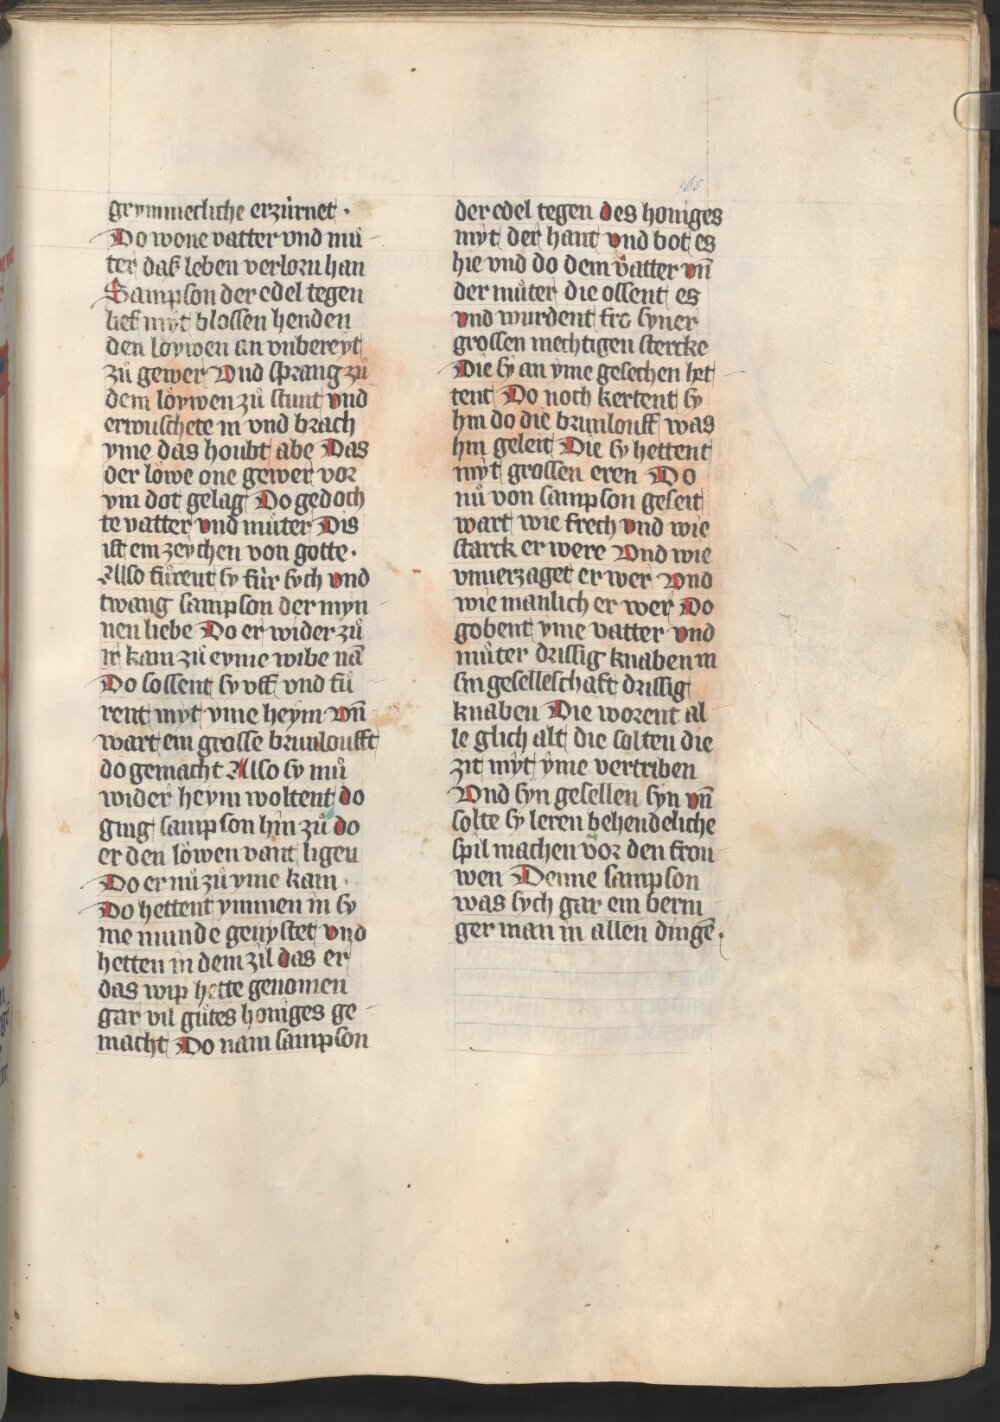 165
grymmecliche erzúrnet ·
Do wone vatter vnd mů
ter daß leben verlorn han
Sampson der edel tegen
lief myt blossen henden
den lóywen an vnbereyt
zů gewer Vnd sprang zů
dem lóywen zů stunt vnd
erwuschete in vnd brach
yme das houbt abe Das
der lówe one gewer vor
ym dot gelag Do gedoch
te vatter vnd můter Dis
ist ein zeychen von gotte ·
Also fůrent sy fúr sych vnd
twang sampson der myn
nen liebe Do er wider zů
ir kam zů eyme wibe nā
Do sossent sy vff vnd fů
rent myt yme heym vn̄
wart ein grosse brunloufft
do gemacht Also sy mů
wider heym woltent do
ging sampson hin zů do
er den lówen vant ligen
Do er nů zů yme kam ·
Do hettent ymmen in sy
me munde genystet vnd
hetten in dem zil das er
das wip hette genomen
gar vil gůtes honiges ge
macht Do nam sampson
der edel tegen des honiges
myt der hant vnd bot es
hie vnd do dem vatter vn̄
der můter die ossent es
vnd wurdent fro syner
grossen mechtigen stercke
Die sy an yme gesechen het
tent Do noch kertent sy
hin do die brunlouff was
hin geleit Die sy hettent
myt grossen eren Do
nů von sampson geseit
wart wie frech vnd wie
starck er were Vnd wie
vnuerzaget er wer Vnd
wie manlich er wer Do
gobent yme vatter vnd
můter drissig knaben in
sin geselleschaft drissig
knaben Die worent al
le glich alt die solten die
zit myt yme vertriben
Vnd syn gesellen syn vn̄
solte sy leren behendeliche
spil machen vor den frou
wen Denne sampson
was sych gar ein berm
ger man in allen dingē ·